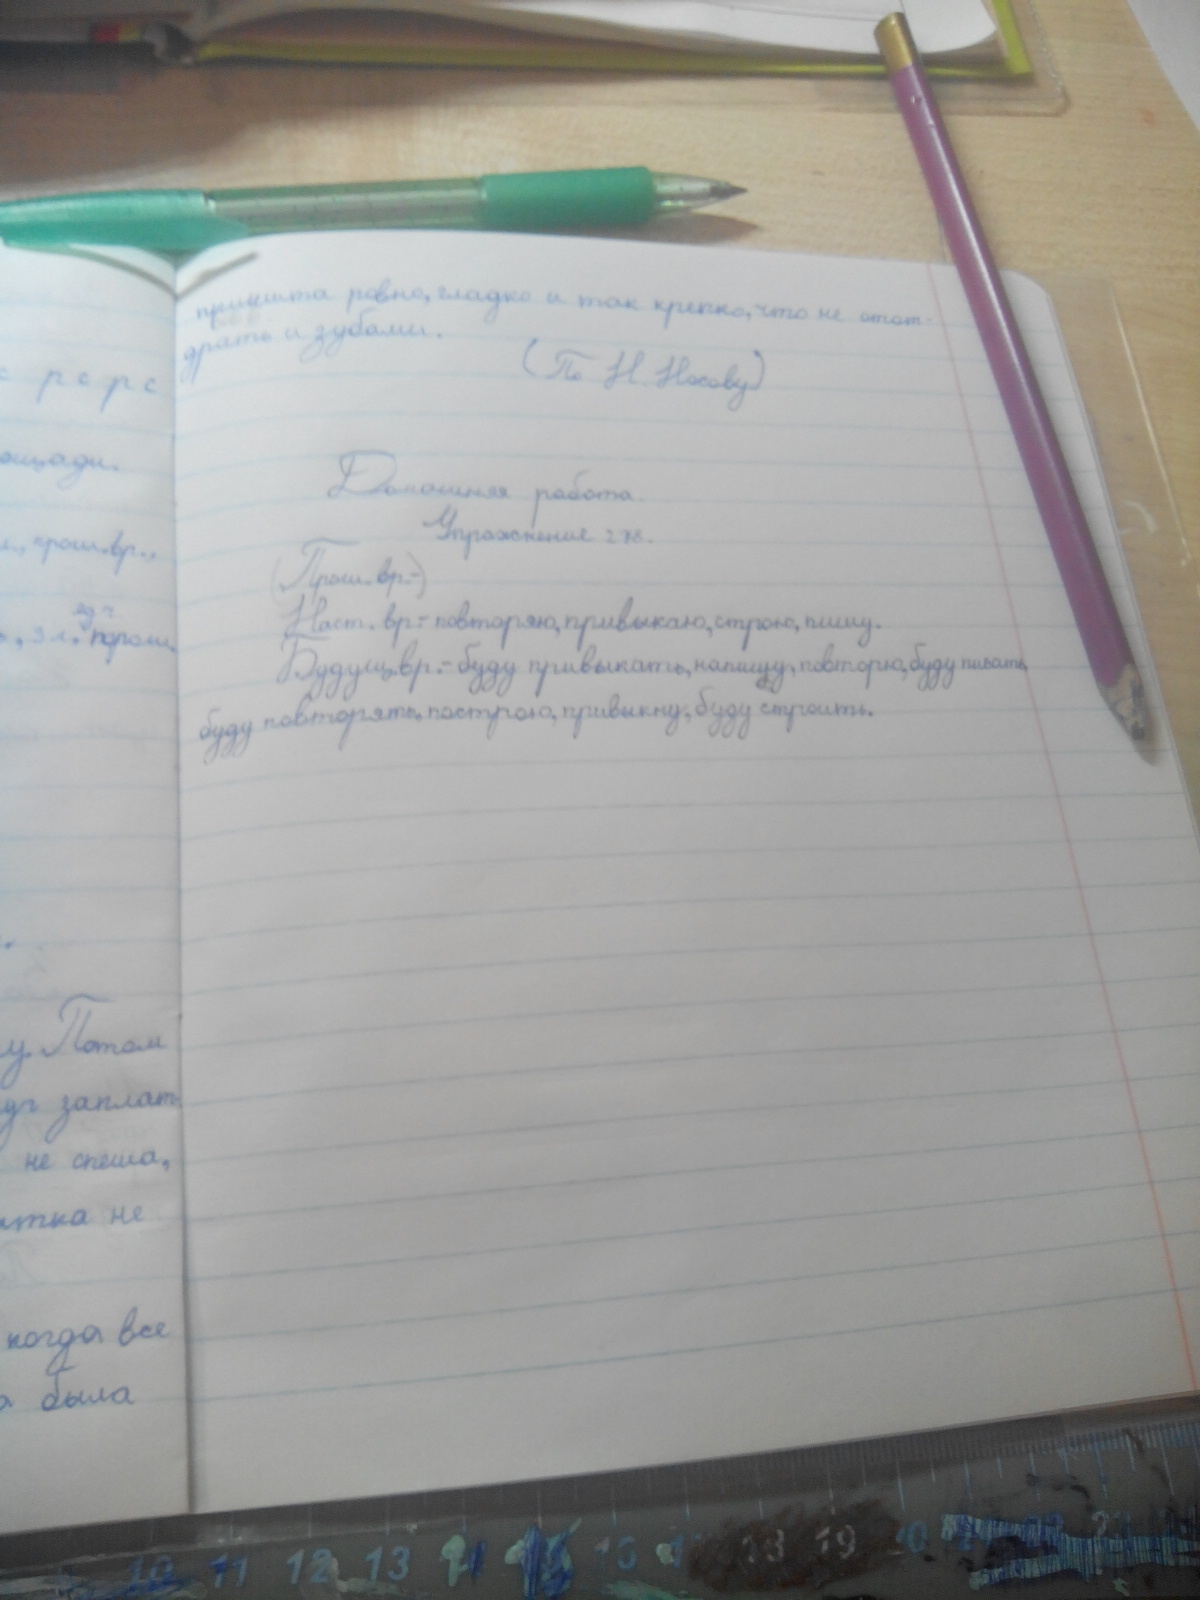 с р с р с
ощади.
л., прош. вр.,
ед. ч.
, 3 л.
у. Потом
заплат
не спеша,
тка не
когда все
была
пришита ровно, гладко и так крепко, что не отот-
драть и зубами.
(По Н. Носову)
Домашняя работа.
Упражнение 278.
(Прош. вр.-)
Наст. вр.- повторяю, привыкаю, строю, пишу.
Будущ. вр.- буду привыкать, напишу, повторю, буду писать,
буду повторять, построю, привыкну, буду строить.
10 11 12 13 14 15 16 17 18 19